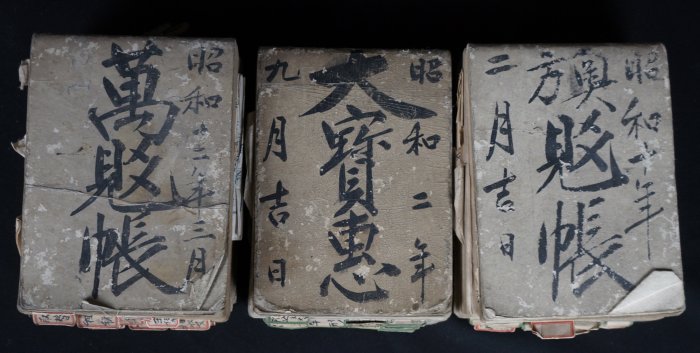 昭和十二年三月
萬帳
昭和二年
大寳惠
九月吉日
昭和十年
奥方帳
二月吉日